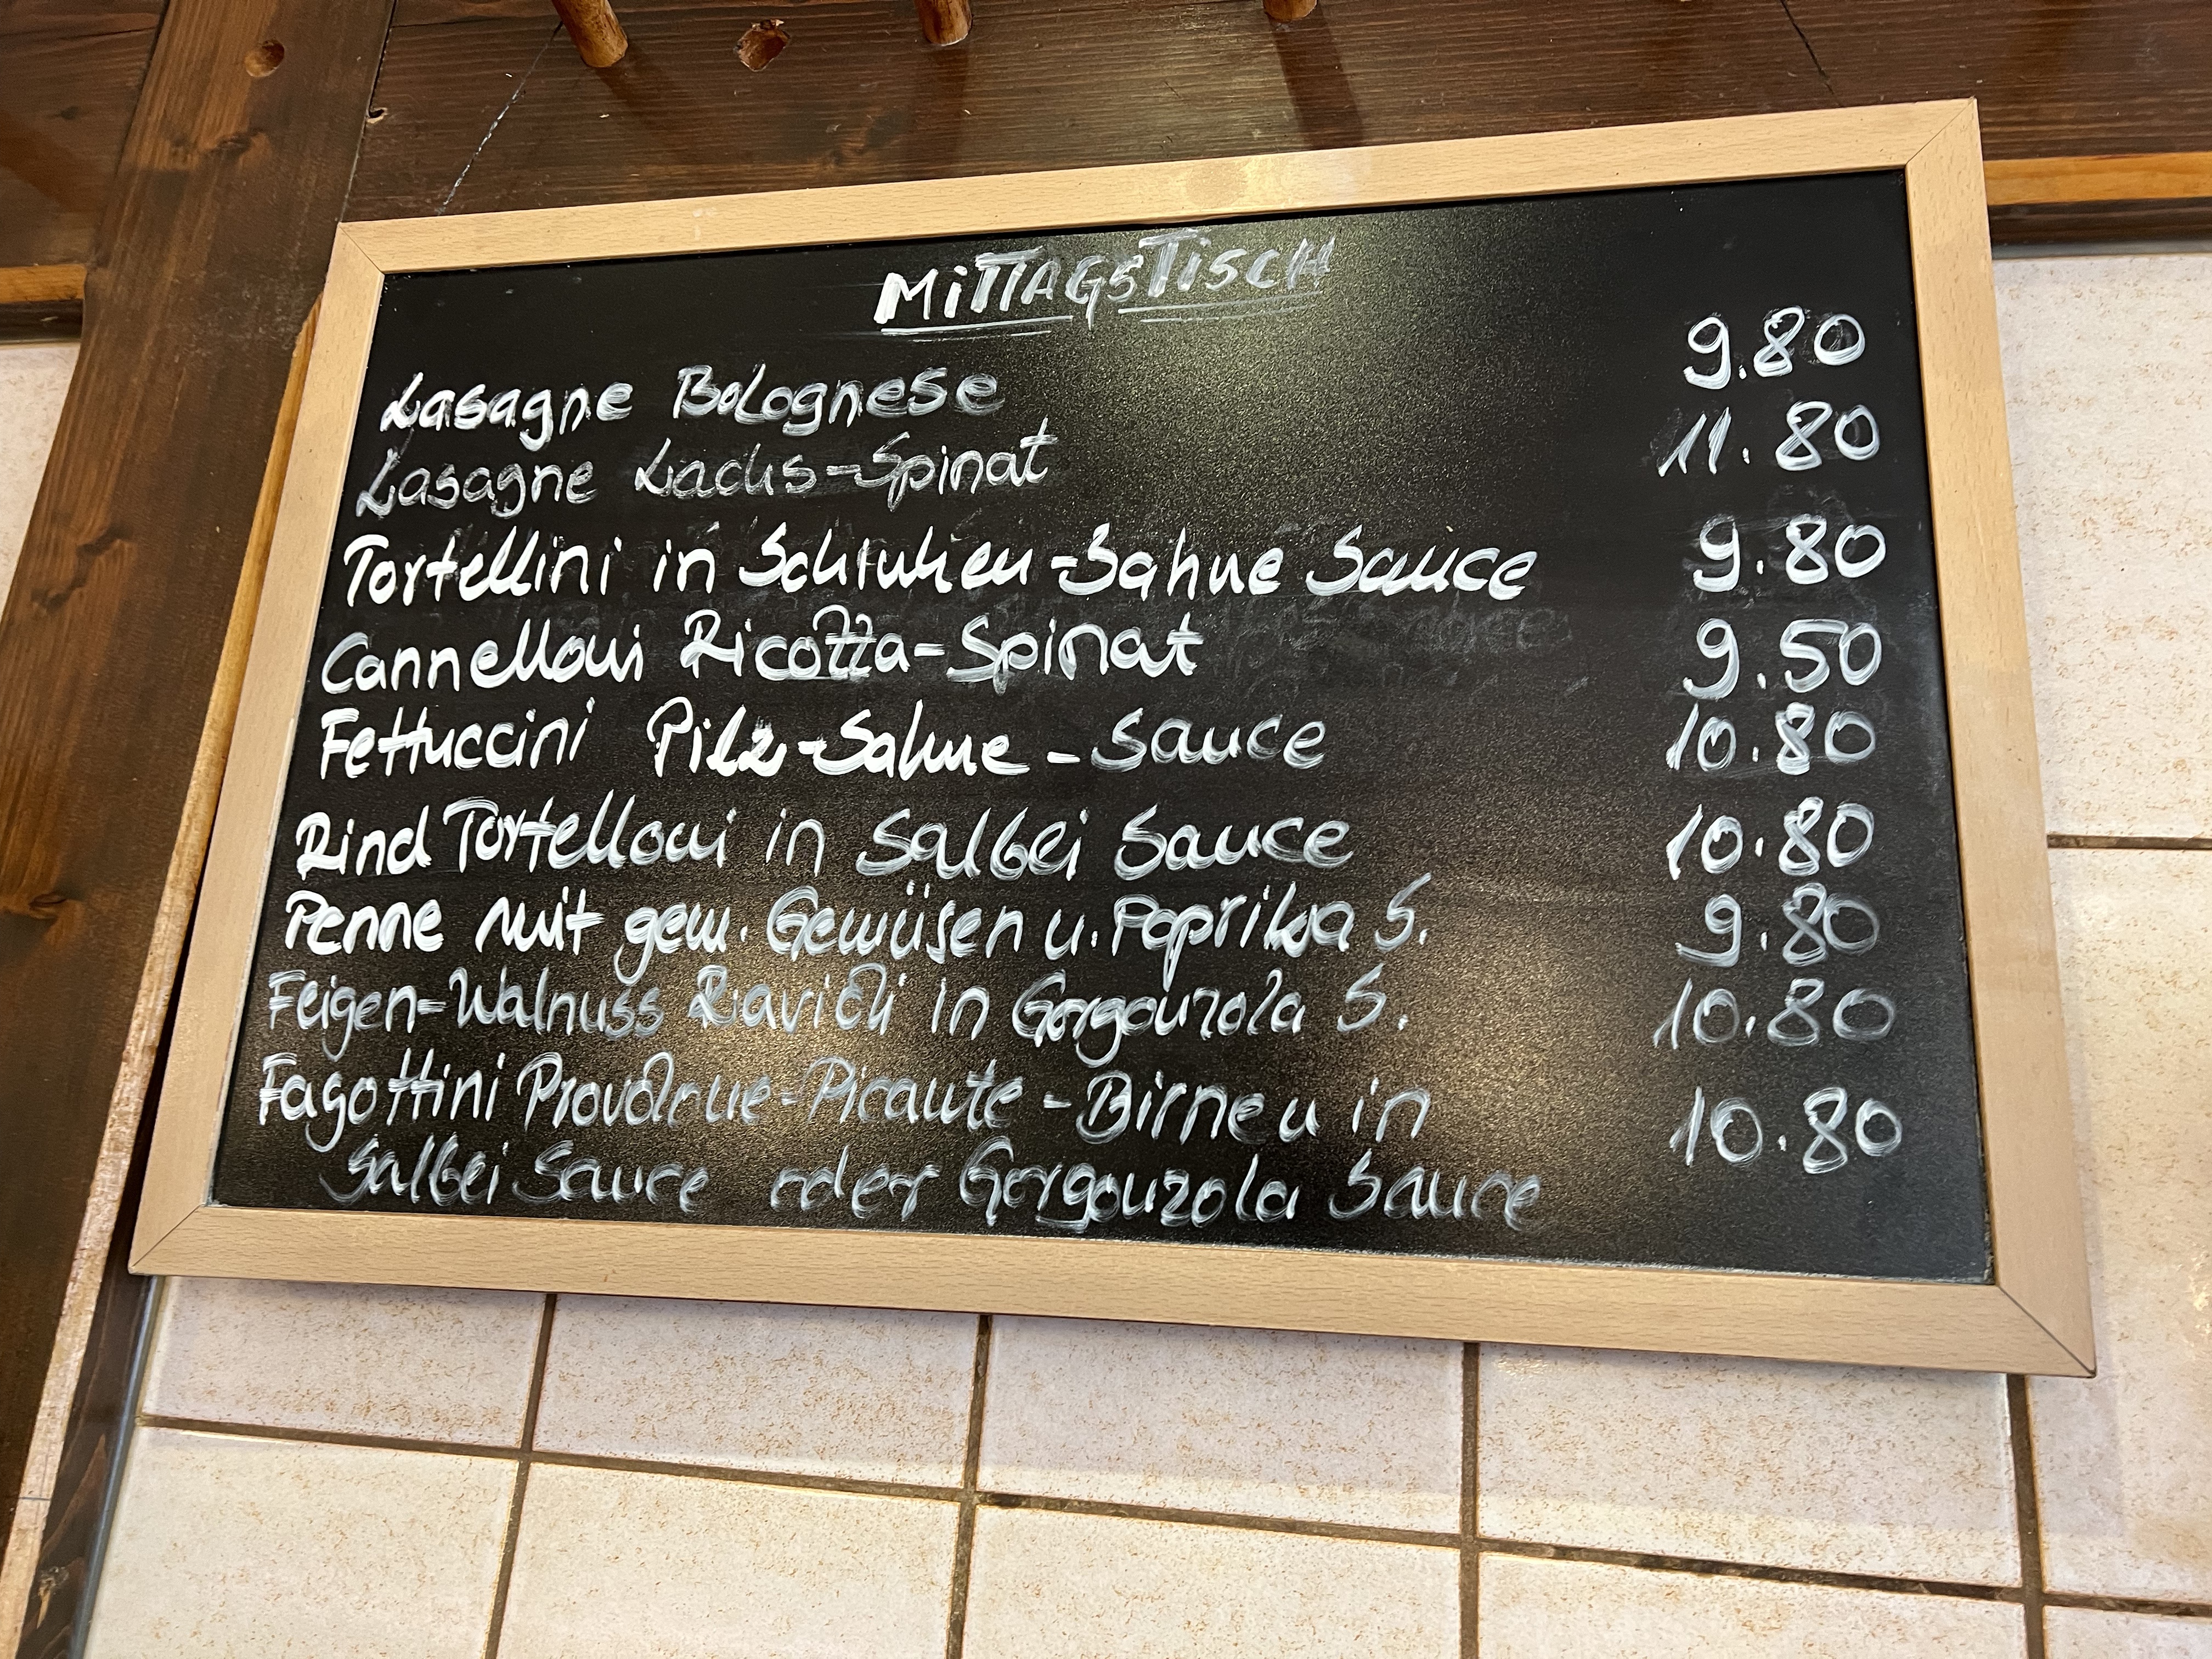 MITTAGSTISCH
Lasagne Bolognese 9.80
Lasagne Lachs-Spinat 11.80
Tortellini in Schinken-Sahne Sauce 9.80
Cannelloni Ricotta-Spinat 9.50
Fettuccini Pilz-Sahne-Sauce 10.80
Rind Tortelloni in Salbei Sauce 10.80
Penne mit gem. Gemüsen u. Paprika S. 9.80
Feigen-Walnuss Ravioli in Gorgonzola S. 10.80
Fagottini Provolone-Picante-Birnen in 10.80
Salbei Sauce oder Gorgonzola Sauce